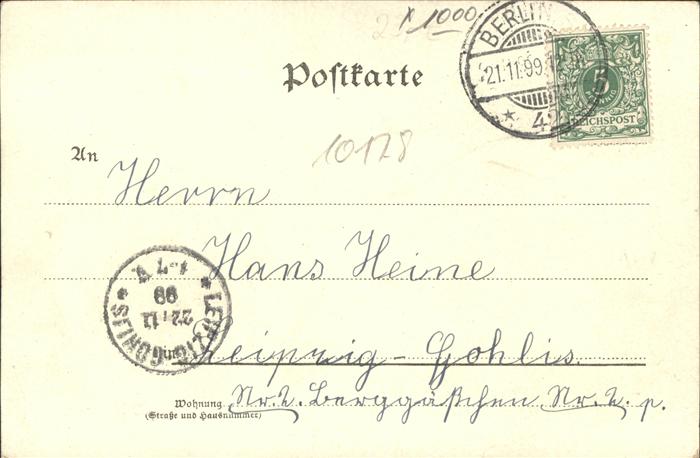 1000
BERLIN
21.11.99.
* 42
5
REICHSPOST
Postkarte
10178
An
Herrn
Hans Heine
LEIPZIG-GOHLIS
22.11
99
Leipzig-Gohlis.
Wohnung
(Straße und Hausnummer)
Nr. 2. Berggäßchen Nr. 2. p.